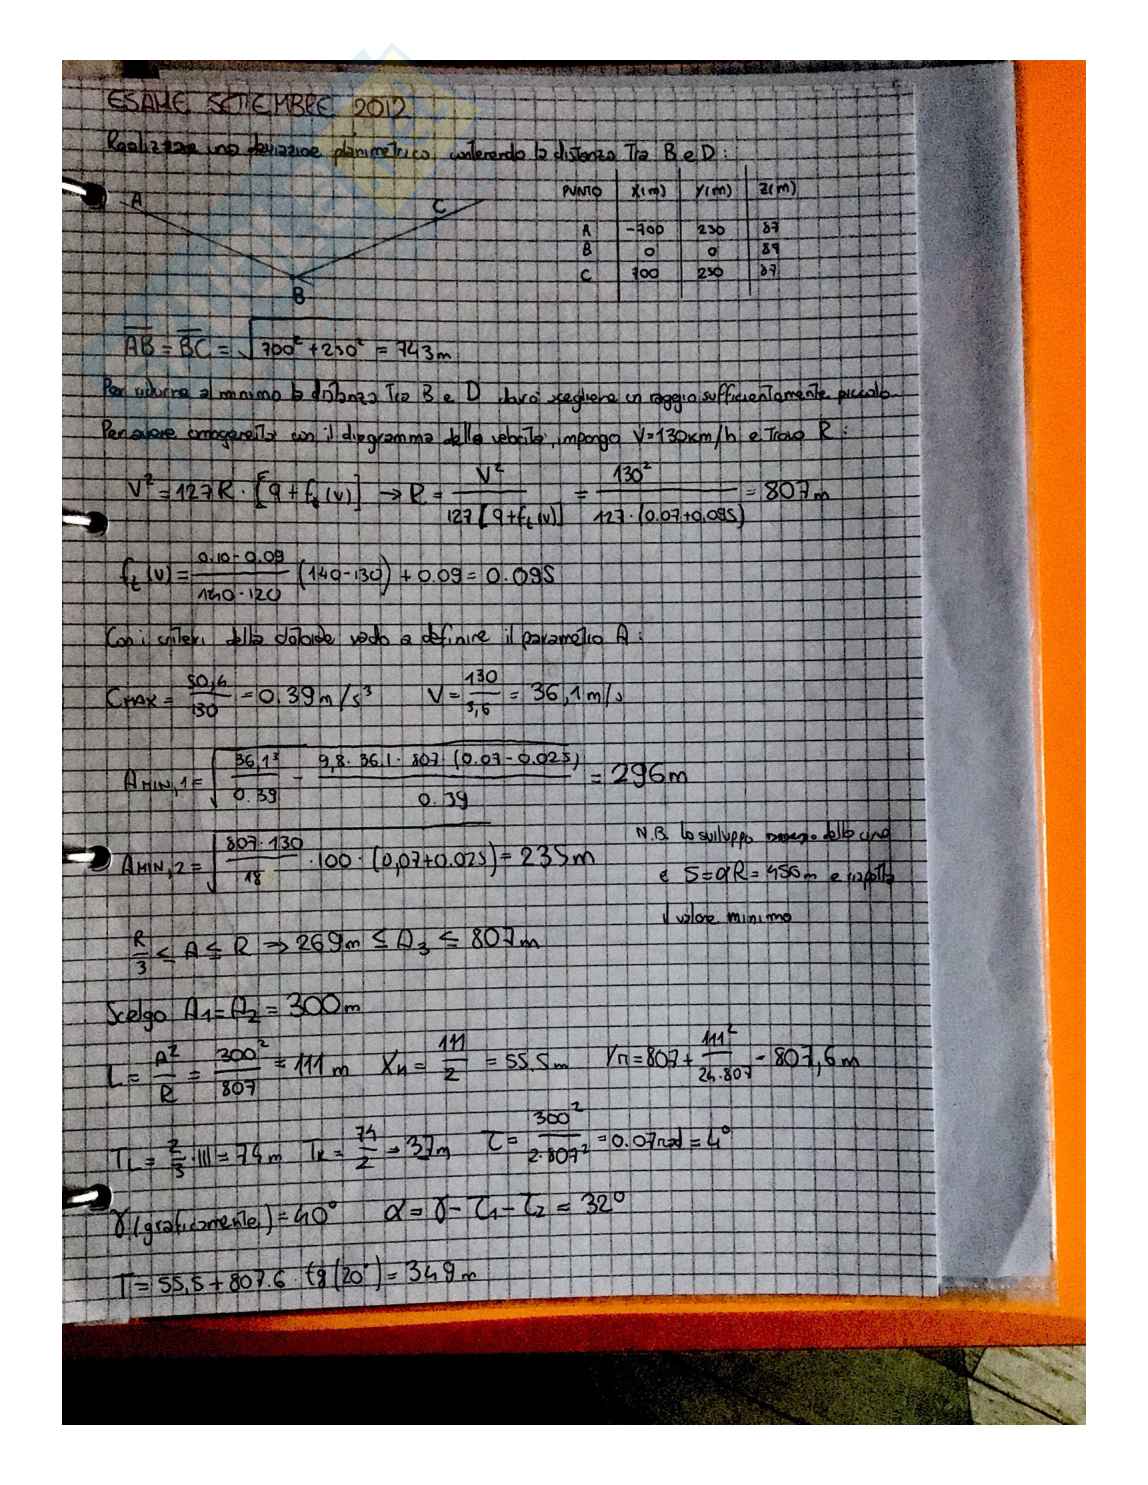 ESAME SETTEMBRE 2012
Realizzare una deviazione planimetrica, contenendo la distanza Tra B e D:
PUNTO X(m) Y(m) Z(m)
A -700 250 87
B 0 0 89
C 700 250 87
A
C
B
AB = BC = √(700² + 250²) = 743m
Per ridurre al minimo la distanza Tra B e D dovrò scegliere un raggio sufficientemente piccolo.
Per avere omogeneità con il diagramma delle velocità, impongo V=130km/h e Trovo R:
V² = 127R · [q + ft(V)] → R = V² / 127[q+ft(V)] = 130² / 127·(0.07+0.095) = 807m
ft(V) = (0.10-0.09)/(140-120) (140-130) + 0.09 = 0.095
Con i criteri della clotoide vado a definire il parametro A:
CMAX = 50,4/130 = 0.39m/s³ V = 130/3,6 = 36,1m/s
AMIN,1 = √(36,1³/0.39 - 9,8·36,1·807·(0.07-0.025)/0.39) = 296m
AMIN,2 = √(807·130/18 · 100·(0,07+0.025)) = 235m
N.B. Lo sviluppo della curva
è S=αR=450m e rispetta
il valore minimo
R/3 ≤ A ≤ R ⇒ 269m ≤ A3 ≤ 807m
Scelgo A1 = A2 = 300m
L = A²/R = 300²/807 = 111m XM = 111/2 = 55.5m YM = 807 + 111²/24·807 = 807,6m
TL = 2/3·111 = 74m TK = 74/2 = 37m τ = 300²/2·807² = 0.07rad = 4°
γ(graficamente) = 40° α = γ - τ1 - τ2 = 32°
T = 55,5 + 807.6 · tg(20°) = 349m